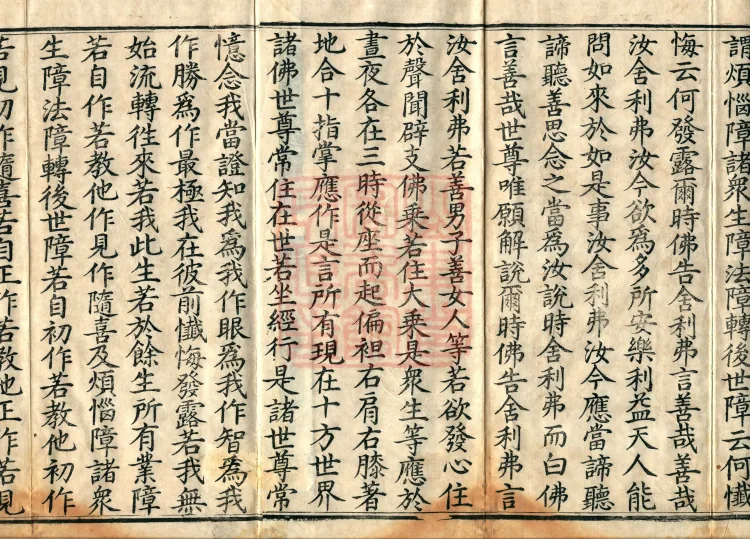 謂煩惱障諸衆生障法障轉後世障云何懺
悔云何發露爾時佛告舍利弗言善哉善哉
汝舍利弗汝今欲爲多所安樂利益天人能
問如來於如是事汝舍利弗汝今應當諦聽
諦聽善思念之當爲汝說時舍利弗而白佛
言善哉世尊唯願解說爾時佛告舍利弗言
汝舍利弗若善男子善女人等若欲發心住
於聲聞辟支佛乘若住大乘是衆生等應於
晝夜各在三時從座而起偏袒右肩右膝著
地合十指掌應作是言所有現在十方世界
諸佛世尊常住在世若坐經行是諸世尊常
憶念我當證知我爲我作眼爲我作智爲我
作勝爲作最極我在彼前懺悔發露若我無
始流轉往來若我此生若於餘生所有業障
若自作若教他作見作隨喜及煩惱障諸衆
生障法障轉後世障若自初作若教他初作
若見初作隨喜若自正作若教他正作若見